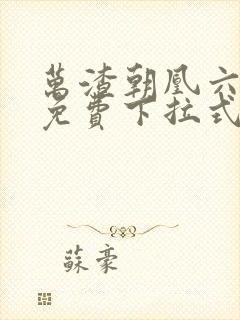 萬渣朝凰六
免費下拉式
蘇豪